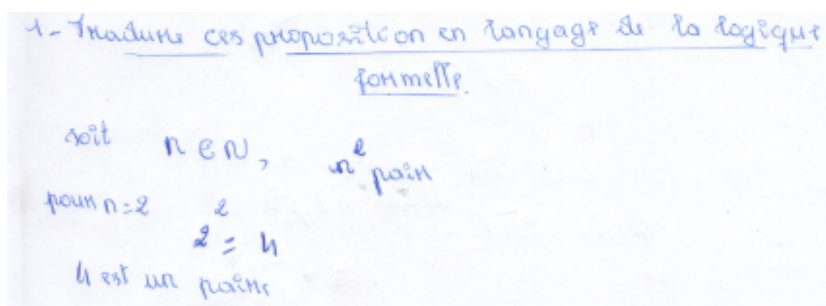 1- Traduire ces proposition en langage de la logique
formelle.
soit n ∈ N, n² pair
pour n=2
2² = 4
4 est un paire